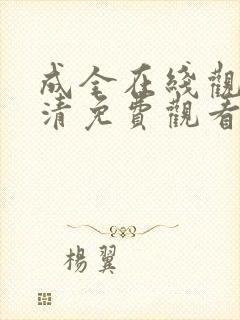 成全在綫觀
清免費觀看
楊翼